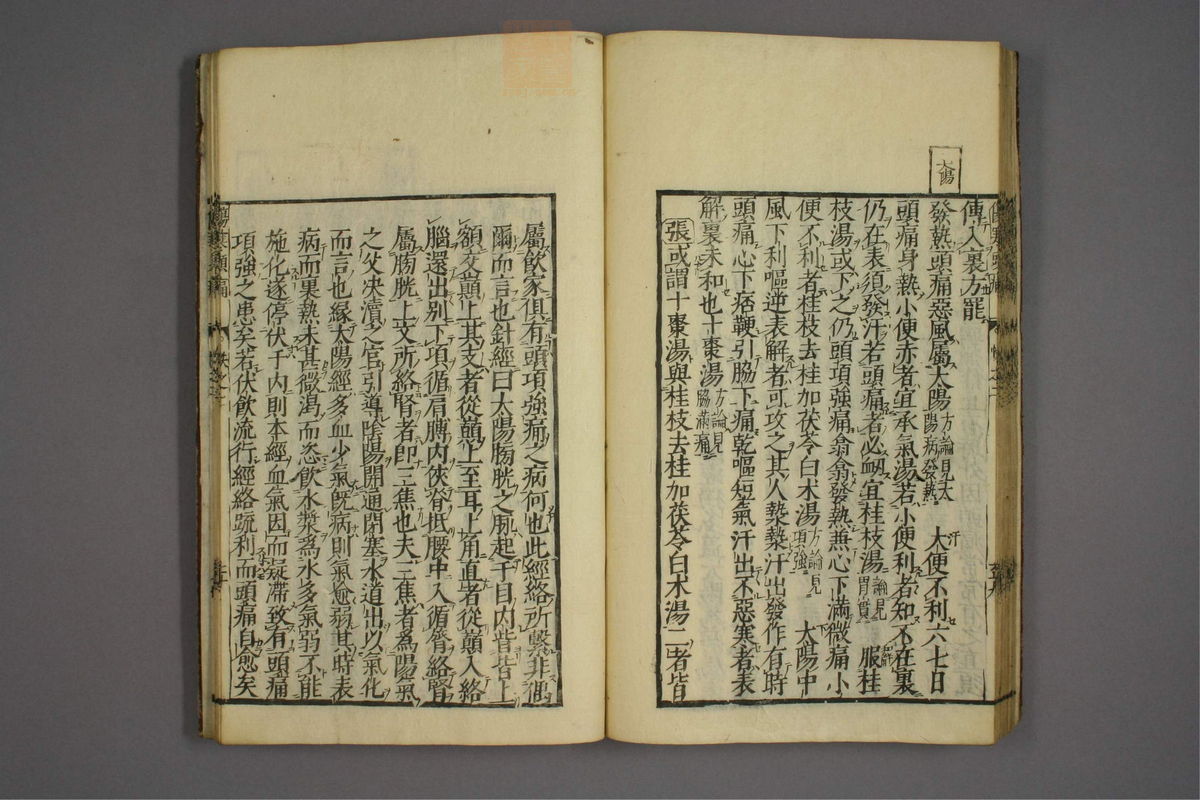 太陽
傳入裏方罷
發熱頭痛惡風屬太陽方論見太陽病發熱 汗 大便不利六七日
頭痛身熱小便赤者宜承氣湯若小便利者知不在裏
仍在表須發汗若頭痛者必衂宜桂枝湯論見胃實 解 服桂
枝湯或下之仍頭項強痛翕翕發熱無心下滿微痛小
便不利者桂枝去桂加茯苓白朮湯方論見項強 下 太陽中
風下利嘔逆表解者可攻之其人漐漐汗出發作有時
頭痛心下痞鞕引脇下痛乾嘔短氣汗出不惡寒者表
解裏未和也十棗湯方論見脇滿痛
張或謂十棗湯與桂枝去桂加茯苓白朮湯二者皆
屬飲家俱有頭項強痛之病何也此經絡所繫非偶
爾而言也針經曰太陽膀胱之脈起于目内眥皆上
額交巔上其支者從巔上至耳上角直者從巔入絡
腦還出别下項循肩膊内俠脊抵腰中入循膂絡腎
屬膀胱上文所絡腎者即三焦也夫三焦者爲陽氣
之父决瀆之官引導陰陽開通閉塞水道出以氣化
而言也緣太陽經多血少氣旣病則氣愈弱其時表
病而裏熱未甚微渴而恣飲水漿爲水多氣弱不能
施化遂停伏于内則本經血氣因而凝滯致有頭痛
項強之患矣若伏飲流行經絡疏利而頭痛自愈矣